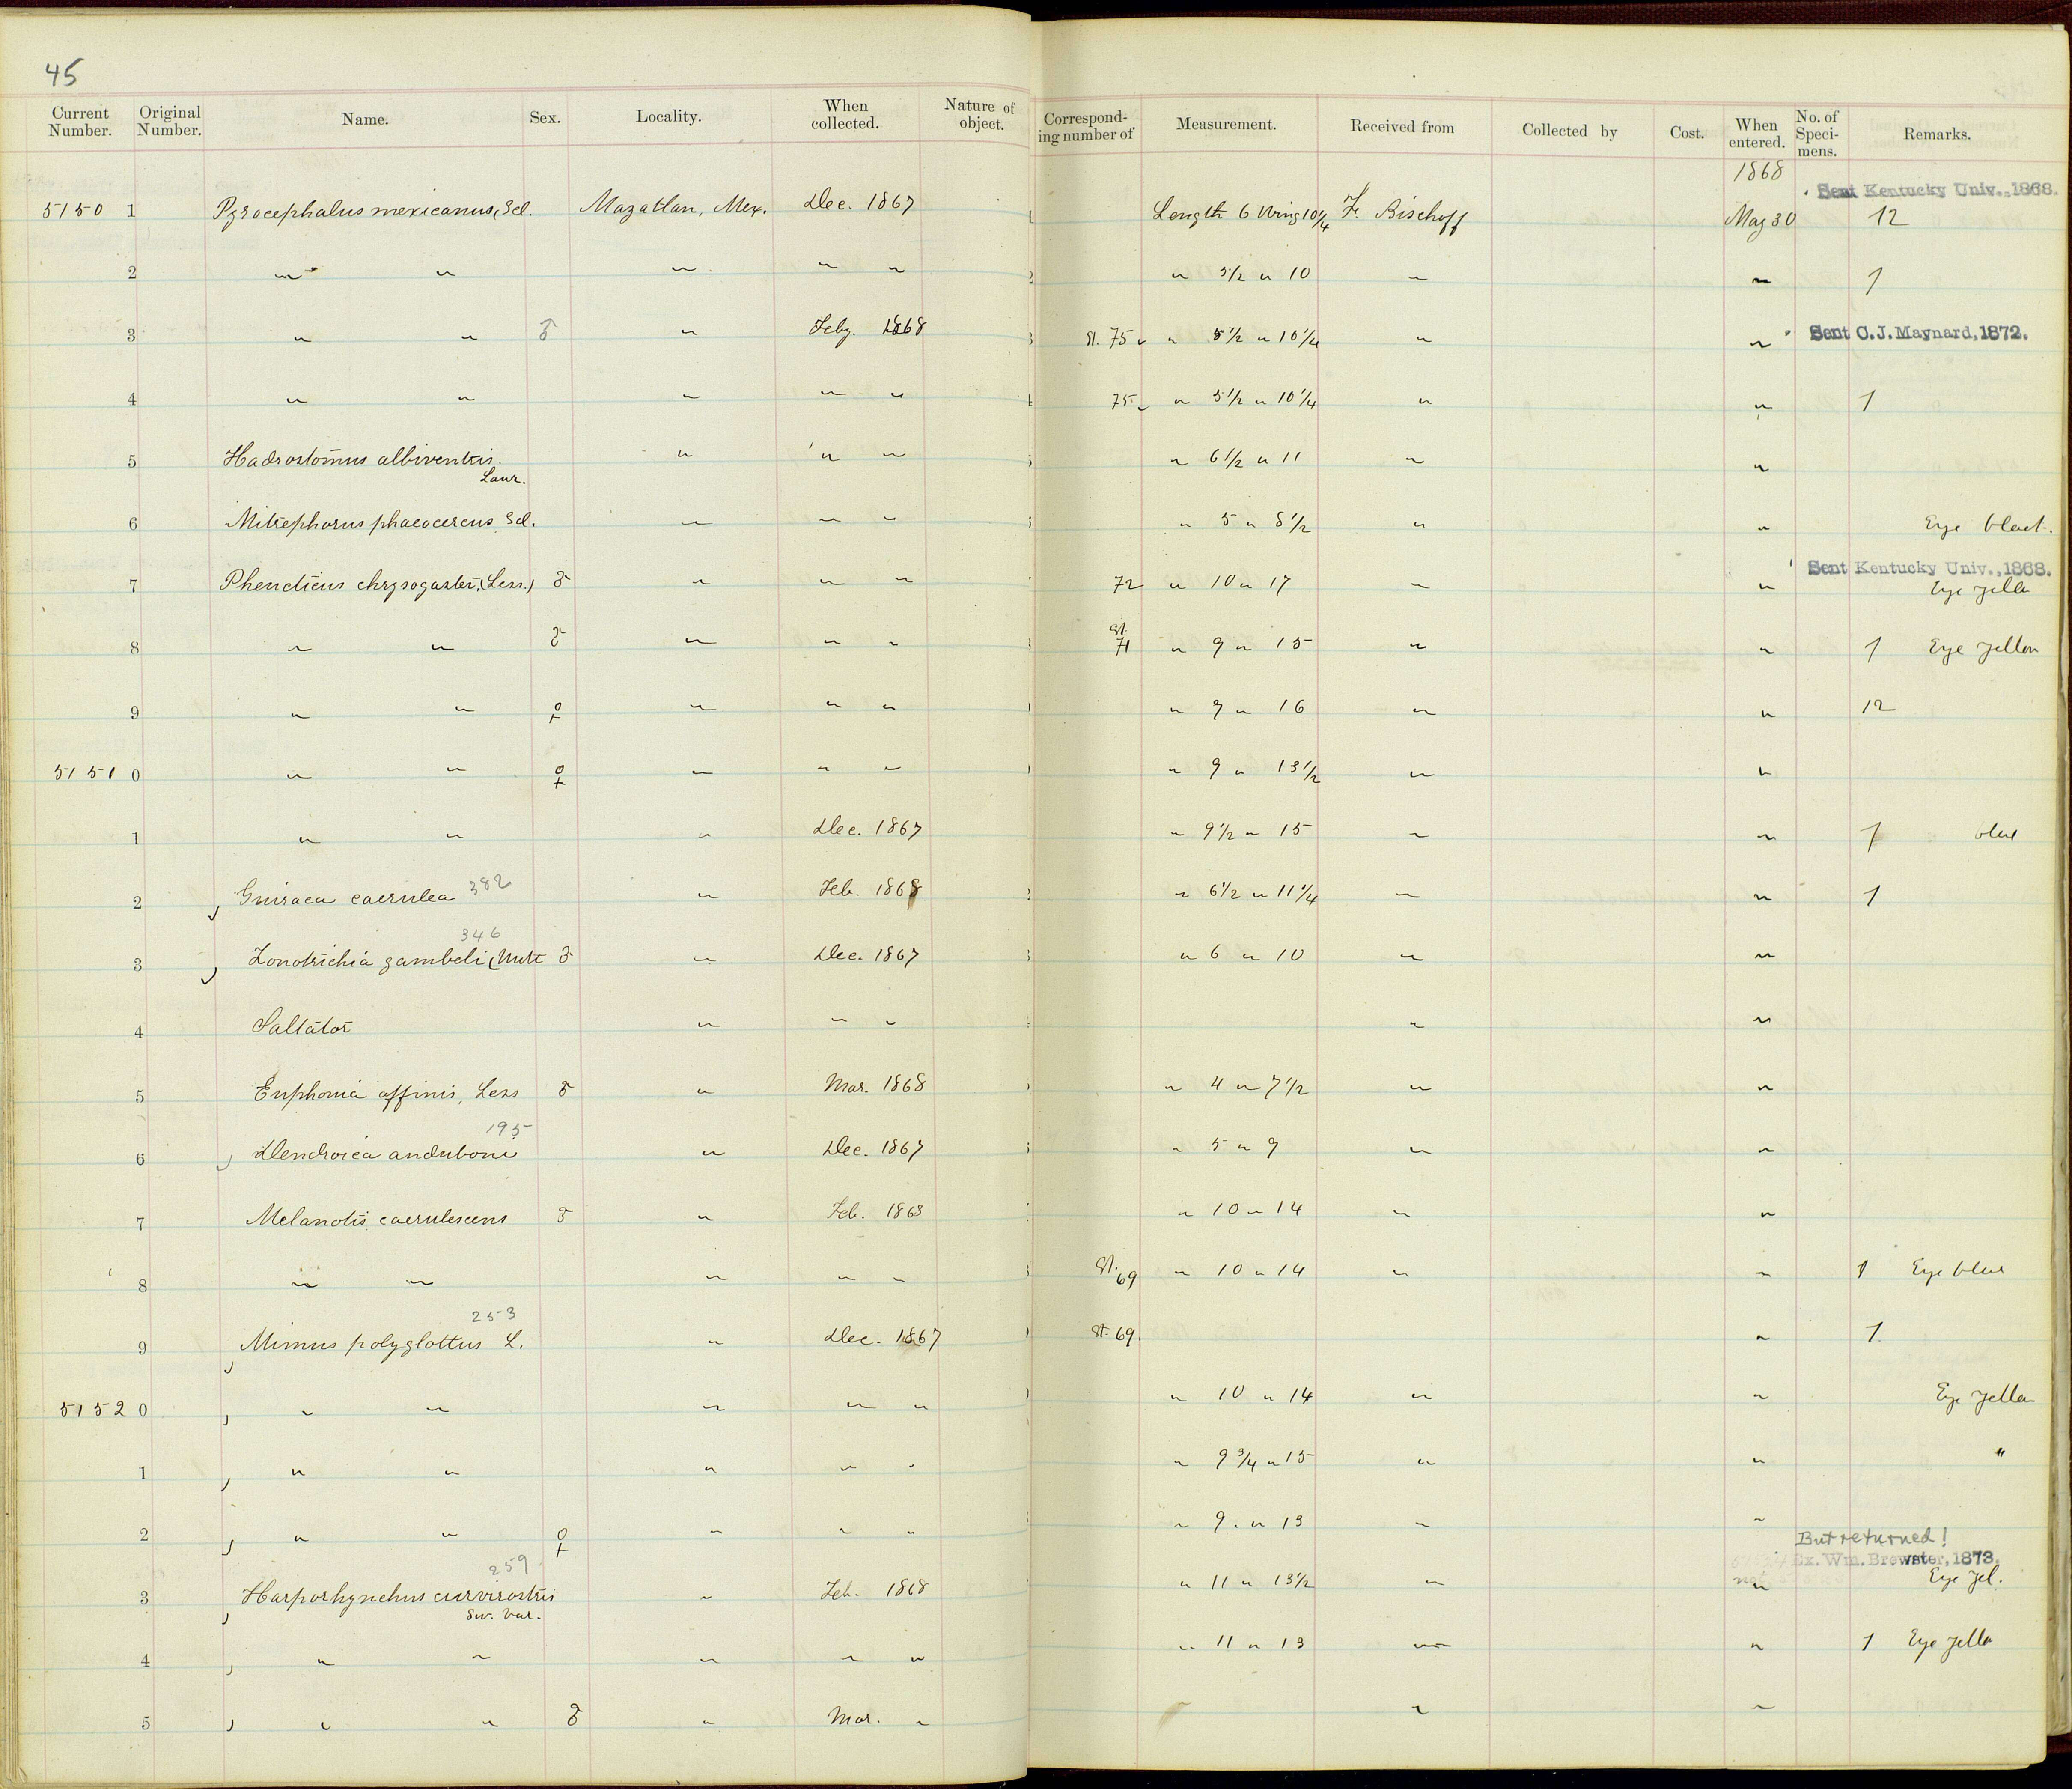 45
Current Number. Original Number. Name. Sex. Locality. When collected. Nature of object. Corresponding number of Measurement. Received from Collected by Cost. When entered. No. of Specimens. Remarks.
1868 Sent Kentucky Univ., 1868.
5150 1 Pyrocephalus mexicanus, Scl. Mazatlan, Mex. Dec. 1867 Length 6 Wing 10 1/4 F. Bischoff May 30 12
2 " " " " " " 5 1/2 " 10 " " 1
3 " " ♂ " Feby. 1868 St. 75 " 5 1/2 " 10 1/4 " " Sent C. J. Maynard, 1872.
4 " " " " " 75 " 5 1/2 " 10 1/4 " " 1
5 Hadrostomus albiventris Lawr. " " " " 6 1/2 " 11 " "
6 Mitrephorus phaeocercus Scl. " " " " 5 " 8 1/2 " " Eye black.
Sent Kentucky Univ., 1868.
7 Pheucticus chrysogaster, (Less.) ♂ " " " 72 " 10 " 17 " " Eye yello
8 " " ♂ " " " St. 71 " 9 " 15 " " 1 Eye yellow
9 " " ♀ " " " " 9 " 16 " " 12
5151 0 " " ♀ " " " " 9 " 13 1/2 " "
1 " " " Dec. 1867 " 9 1/2 " 15 " " 1
2 Guiraca caerulea 382 " Feb. 1868 " 6 1/2 " 11 1/4 " " 1
346
3 Zonotrichia gambeli (Nutt ♂ " Dec. 1867 " 6 " 10 " "
4 Saltator " " " " "
5 Euphonia affinis, Less ♂ " Mar. 1868 " 4 " 7 1/2 " "
195
6 Dendroica auduboni " Dec. 1867 " 5 " 9 " "
7 Melanotis caerulescens ♂ " Feb. 1868 " 10 " 14 " "
8 " " " " " St. 69 " 10 " 14 " " 1 Eye blue
253
9 Mimus polyglottus L. " Dec. 1867 St. 69. " 1
5152 0 " " " " " " 10 " 14 " " Eye yello
1 " " " " " " 9 3/4 " 15 " " "
2 " " ♀ " " " " 9 " 13 " "
But returned!
Ex. Wm. Brewster, 1873.
259
3 Harporhynchus curvirostris Sw. Var. " Feb. 1868 " 11 " 13 1/2 " " Eye yel.
4 " " " " " " 11 " 13 " " 1 Eye yello
5 " " ♂ " Mar. " " "